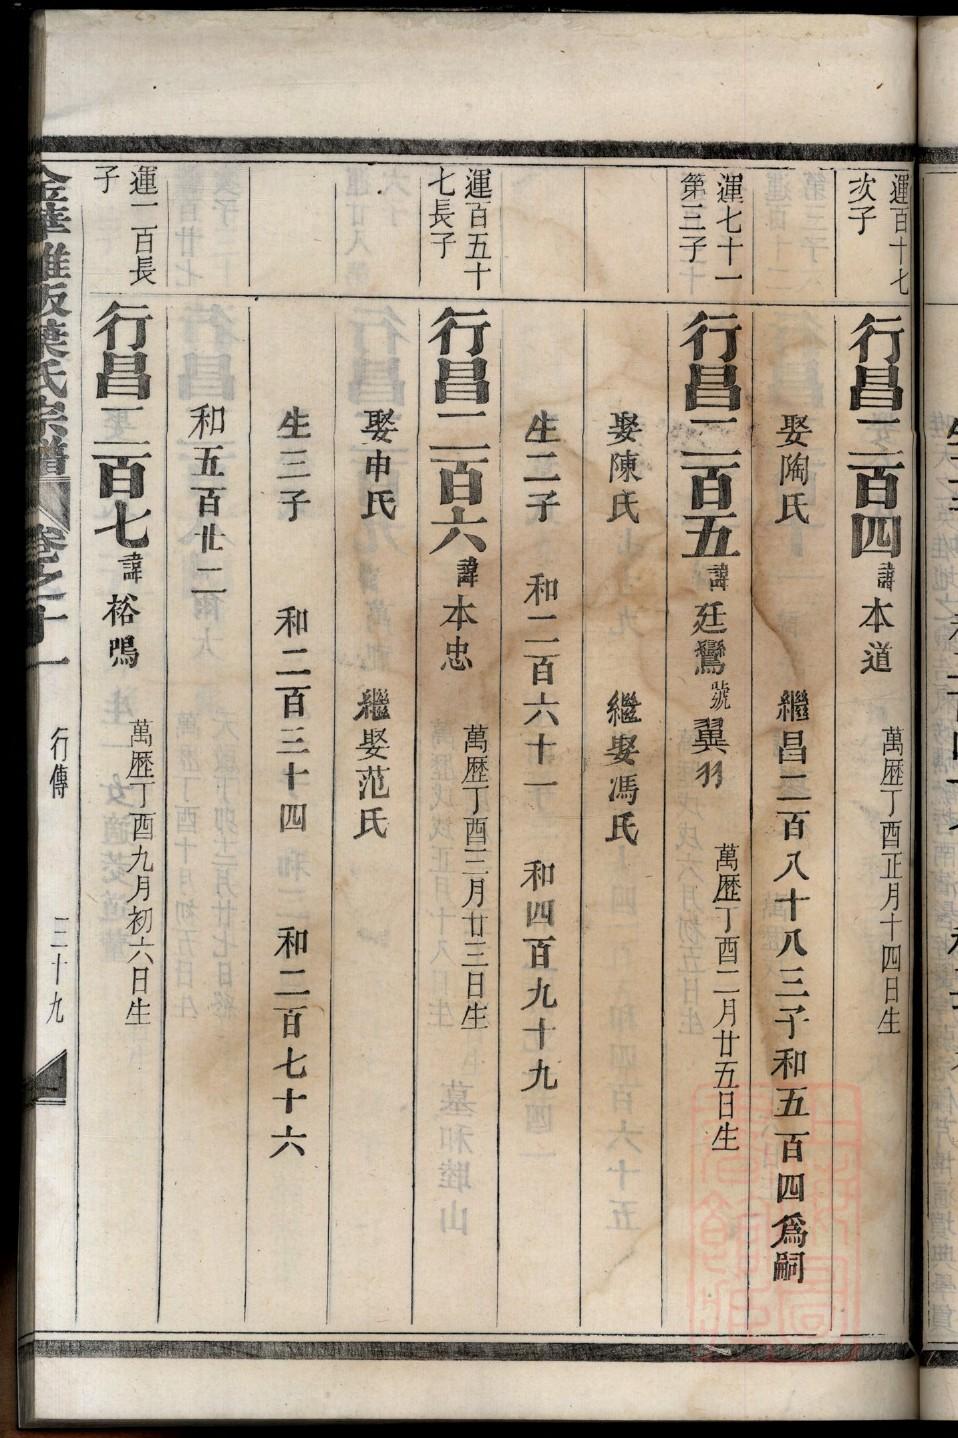 運百十七
次子
行昌二百四諱本道
萬歷丁酉正月十四日生
娶陶氏
繼昌二百八十八三子和五百四爲嗣
運七十一
第三子
行昌二百五諱廷鸞號翼羽
萬歷丁酉二月廿五日生
娶陳氏
繼娶馮氏
生二子
和二百六十一
和四百九十九
運百五十
七長子
行昌二百六諱本忠
萬歷丁酉三月廿三日生
娶申氏
繼娶范氏
生三子
和二百三十四
和二百七十六
和五百廿二
運一百長
子
行昌二百七諱裕鳴
萬歷丁酉九月初六日生
葉氏宗譜
卷之十一
行傳
三十九